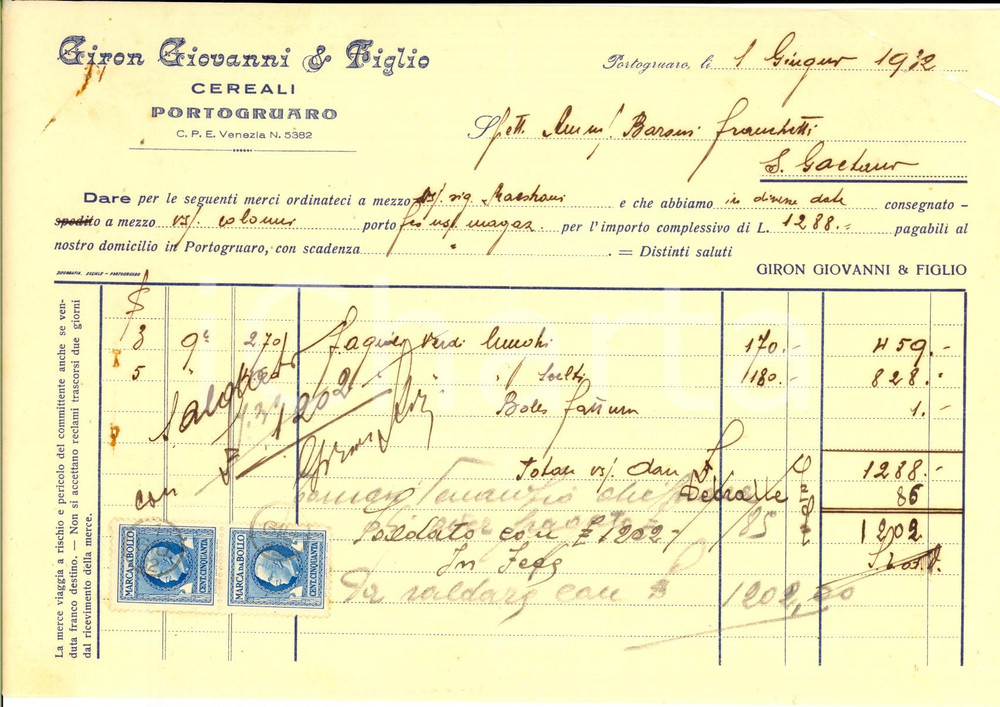 Giron Giovanni & Figlio
CEREALI
PORTOGRUARO
C. P. E. Venezia N. 5382
Portogruaro, li 1 Giugno 1932
Spett. Amm. Baroni Franchetti
S. Gaetano
Dare per le seguenti merci ordinateci a mezzo vs/. sig. Maestrani e che abbiamo in diverse date consegnato -
spedito a mezzo vs/. coloni porto fco ns/. magaz. per l'importo complessivo di L. 1288.= pagabili al
nostro domicilio in Portogruaro, con scadenza " . = Distinti saluti
TIPOGRAFIA SOCIALE - PORTOGRUARO
GIRON GIOVANNI & FIGLIO
La merce viaggia a rischio e pericolo del committente anche se ven-
duta franco destino. — Non si accettano reclami trascorsi due giorni
dal ricevimento della merce.
3 qli 270 Fagioli verdi 170.- 459.-
5 " " Scelti /180.- 828.-
Bolli fattura 1.-
Saldato
1202
con
Totale vs/. dare 1288.-
Detralle 86
/85
Saldato con £ 1202 - 1202
Da saldare con 1202,00
MARCA DA BOLLO
CENT. CINQUANTA
MARCA DA BOLLO
CENT. CINQUANTA